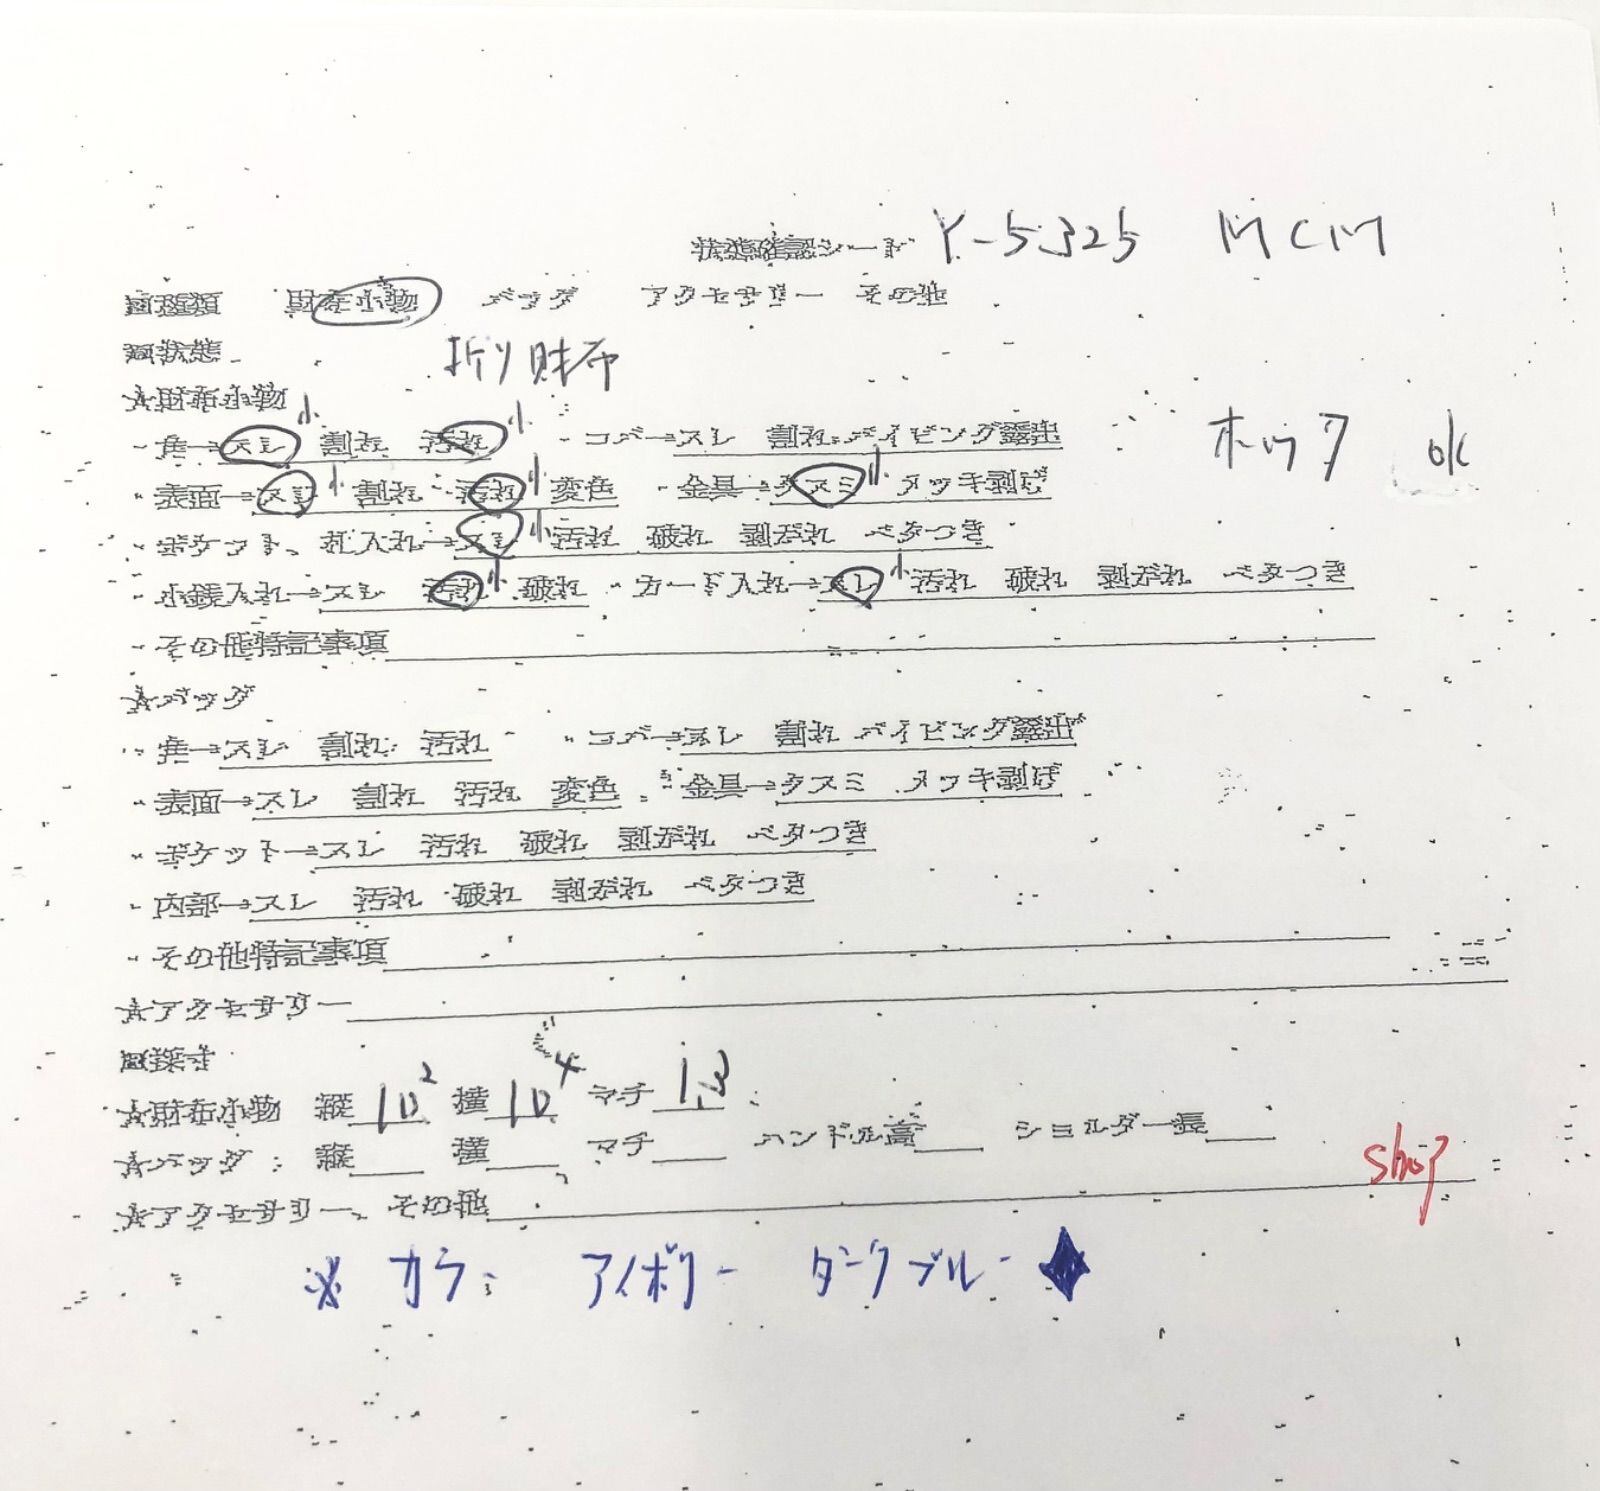 状態確認シート Y-5325 MCM
□種類 財布小物 バッグ アクセサリー その他
□状態 折り財布
☆財布小物
・角→スレ 小 割れ 汚れ 小 ・コバ→スレ 割れ パイピング露出 ホック ok
・表面→スレ 小 割れ 汚れ 小 変色 ・金具→クスミ 小 メッキ剥げ
・ポケット、札入れ→スレ 小 汚れ 破れ 剥がれ ベタつき
・小銭入れ→スレ 汚れ 小 破れ ・カード入れ→スレ 小 汚れ 破れ 剥がれ ベタつき
・その他特記事項
☆バッグ
・角→スレ 割れ 汚れ ・コバ→スレ 割れ パイピング露出
・表面→スレ 割れ 汚れ 変色 ・金具→クスミ メッキ剥げ
・ポケット→スレ 汚れ 破れ 剥がれ ベタつき
・内部→スレ 汚れ 破れ 剥がれ ベタつき
・その他特記事項
☆アクセサリー
□採寸
☆財布小物 縦 10² 横 10⁴ マチ 1.3
☆バッグ: 縦 横 マチ ハンドル高 ショルダー長
☆アクセサリー、その他 shop
※ カラー: アイボリー ダークブルー ◆